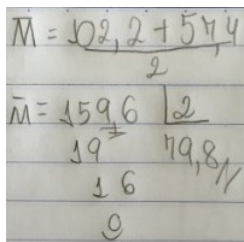 M̅ = 102,2 + 57,4
2
M̅ = 159,6 2
19 79,8//
16
0